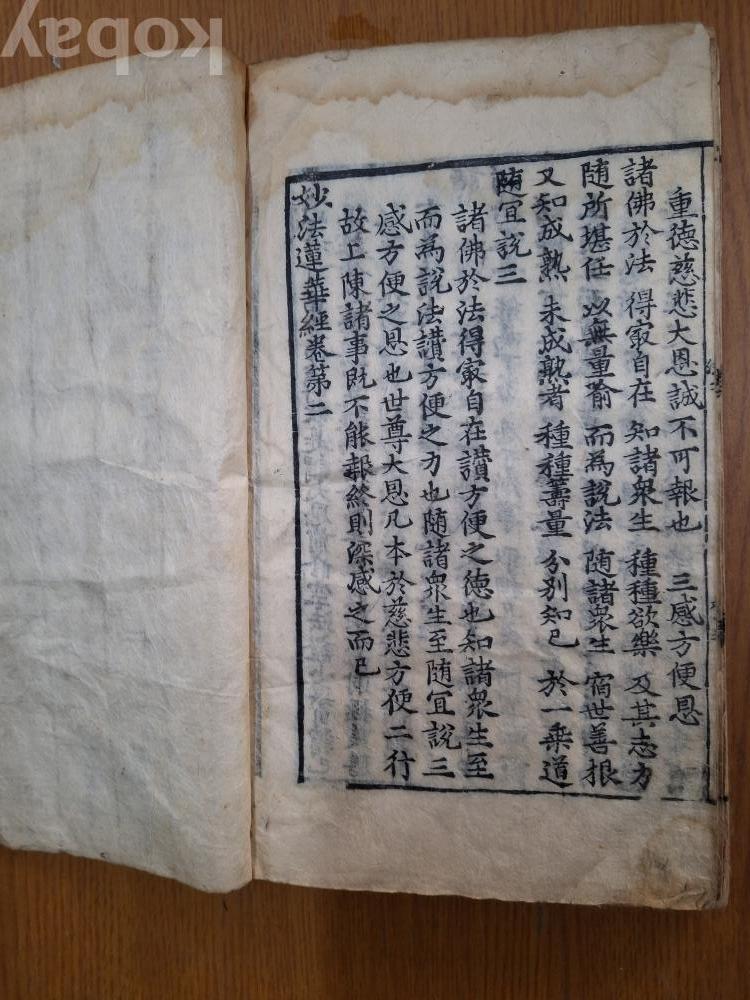 重德慈悲大恩誠不可報也 三感方便恩
諸佛於法 得㝡自在 知諸衆生 種種欲樂 及其志力
随所堪任 以無量喻 而為說法 随諸衆生 宿世善根
又知成熟 未成熟者 種種籌量 分別知已 於一乘道
随冝說三
諸佛於法得㝡自在讃方便之德也知諸衆生至
而為說法讃方便之力也随諸衆生至随冝說三
感方便之恩也世尊大恩凡本於慈悲方便二行
故上陳諸事旣不能報終則深感之而已
妙法蓮華經卷第二
kobay